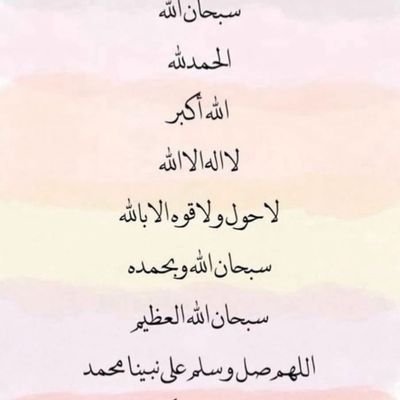 سبحان الله
الحمدلله
الله أكبر
لا اله الا الله
لا حول ولا قوه الا بالله
سبحان الله وبحمده
سبحان الله العظيم
اللهم صل وسلم على نبينا محمد